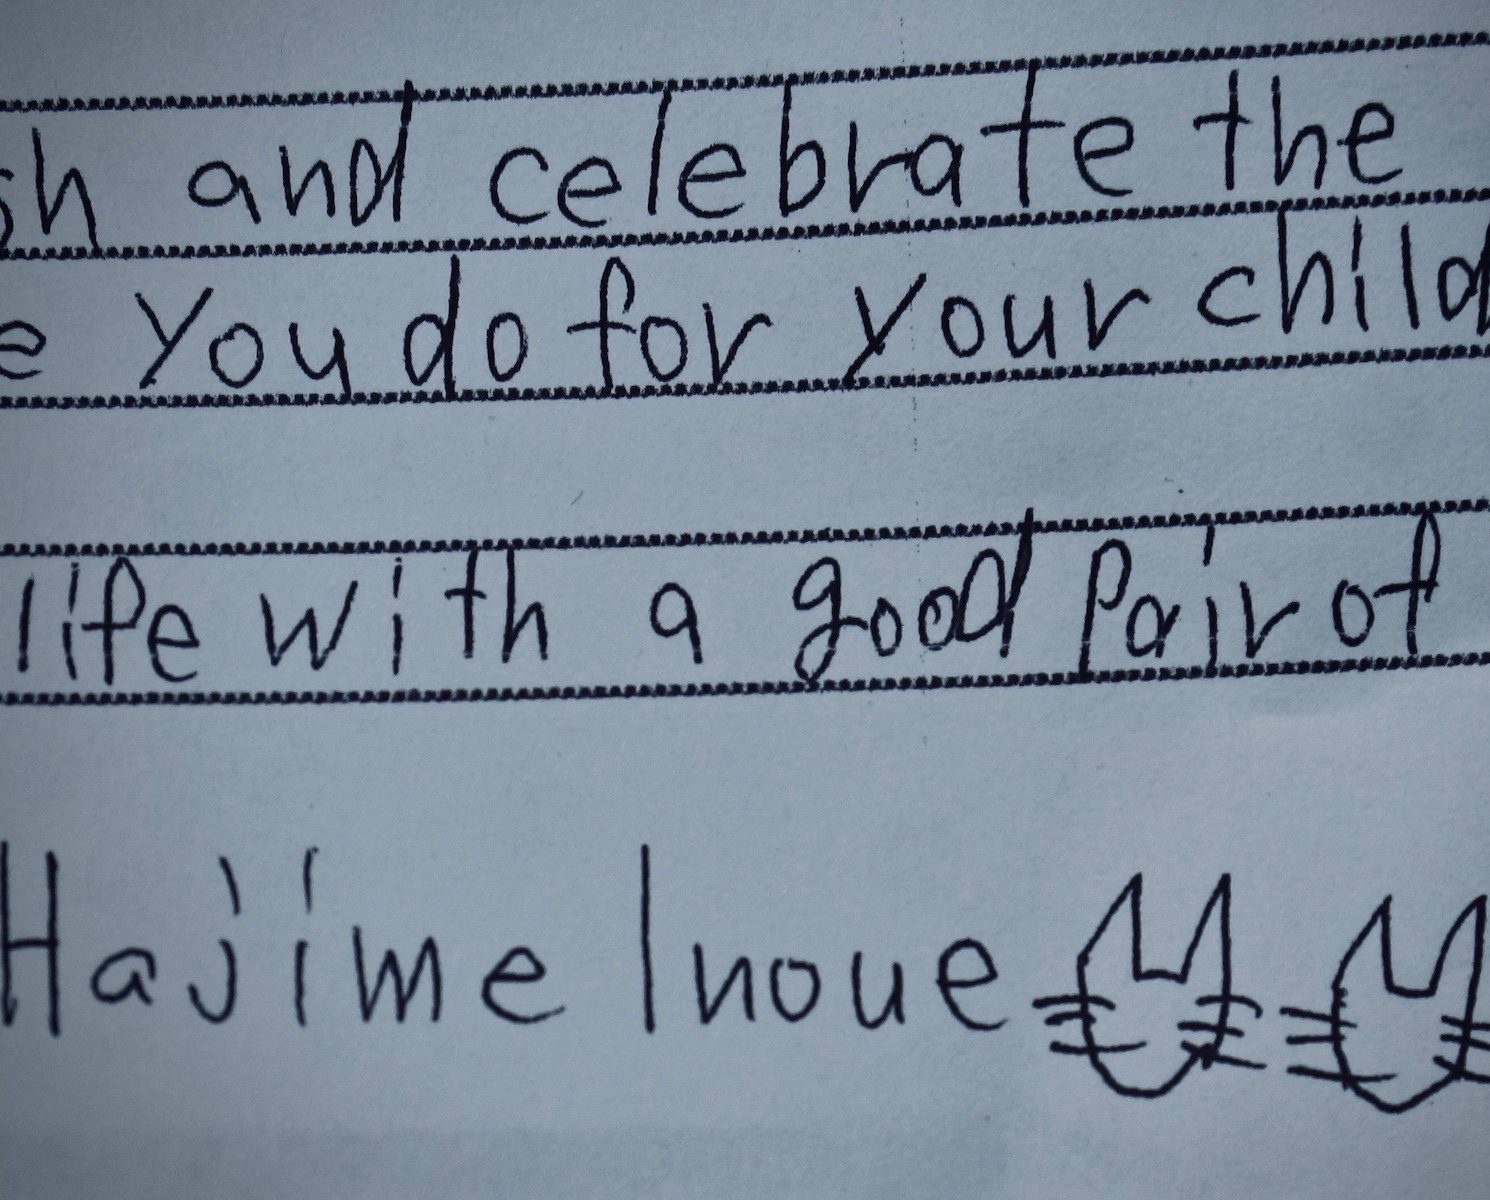 and celebrate the
you do for your child
life with a good pair of
Hajime Inoue